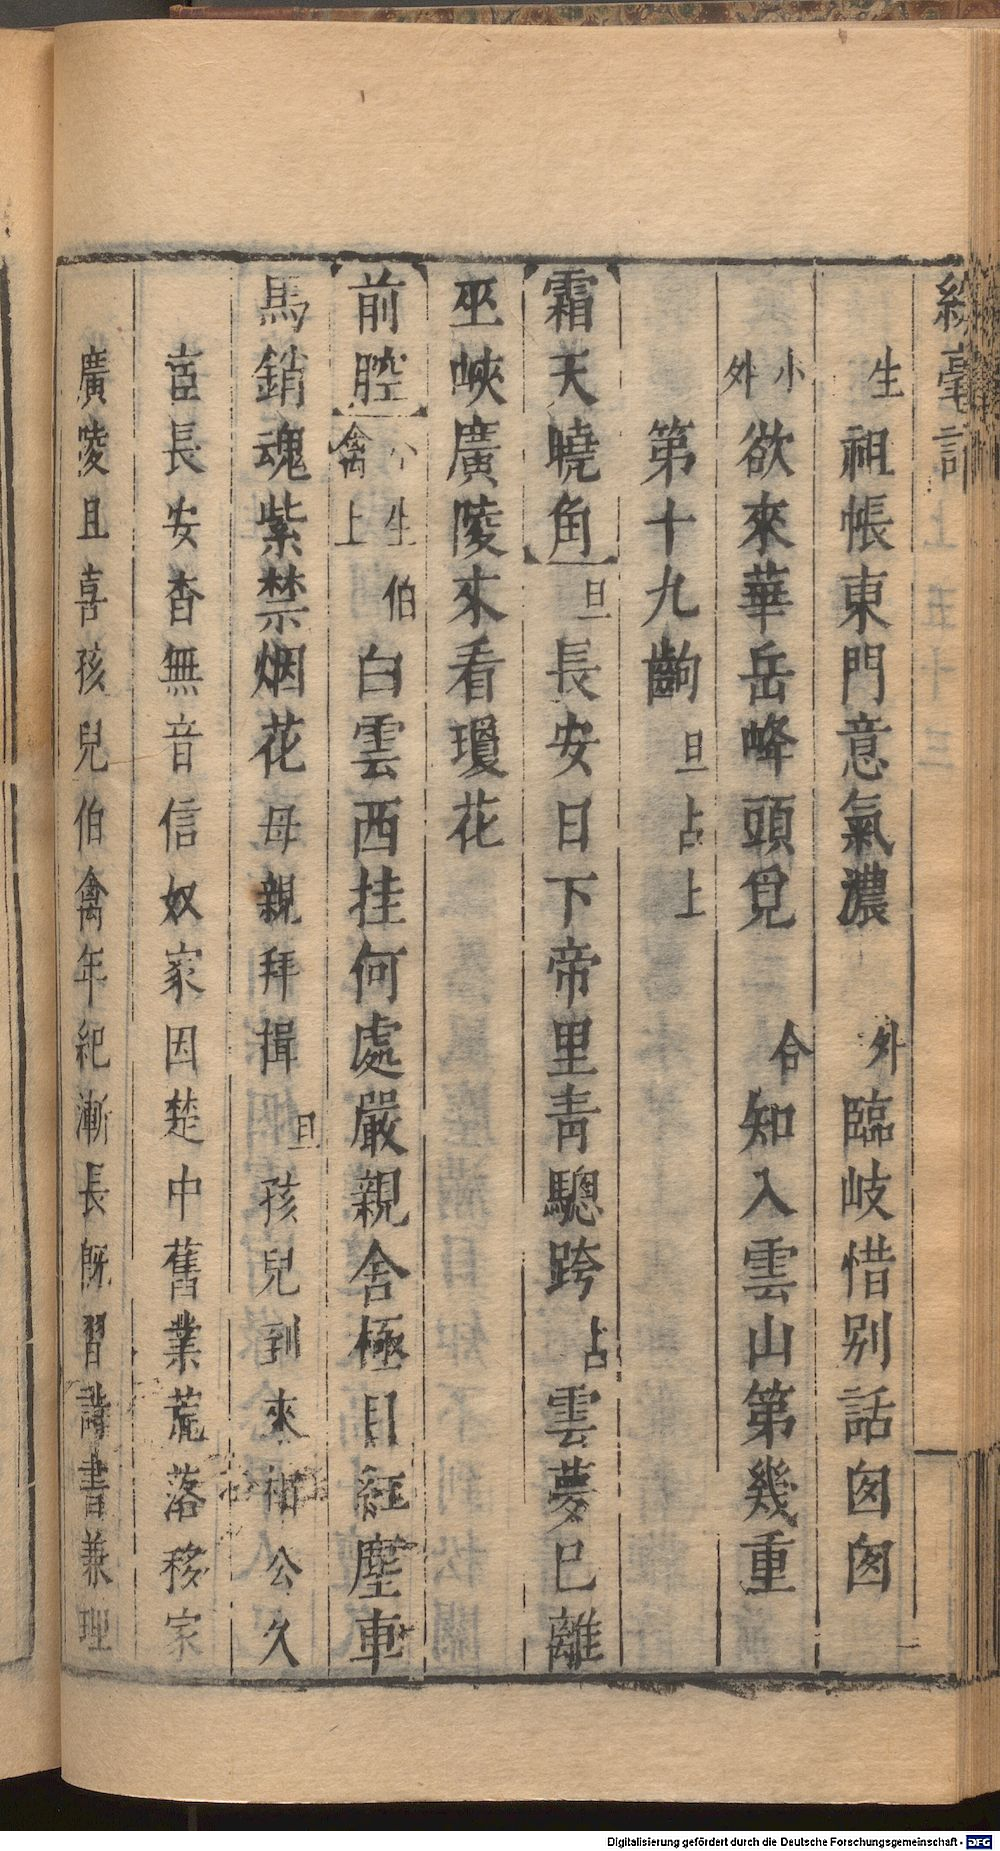 彩毫記
生 祖帳東門意氣濃 外 臨岐惜别話匆匆
小外 欲來華岳峰頭覓 合 知入雲山第幾重
第十九齣 旦占上
霜天曉角 旦 長安日下帝里青驄跨 占 雲夢巳離
巫峽廣陵來看瓊花
前腔 小生伯禽上 白雲西挂何處嚴親舍極目紅塵車
馬銷魂紫禁烟花母親拜揖 旦 孩兒到來相公久
宦長安杳無音信奴家因楚中舊業荒落移家
廣陵且喜孩兒伯禽年紀漸長旣習詩書兼理
Digitalisierung gefördert durch die Deutsche Forschungsgemeinschaft - DFG